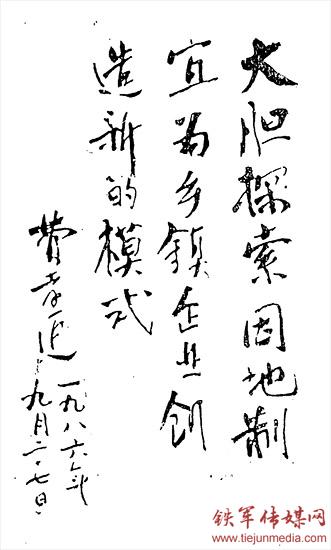 大胆探索因地制
宜为乡镇企业创
造新的模式
費孝通
一九八六年
九月二十七日
铁军传媒网
www.tiejunmedia.com